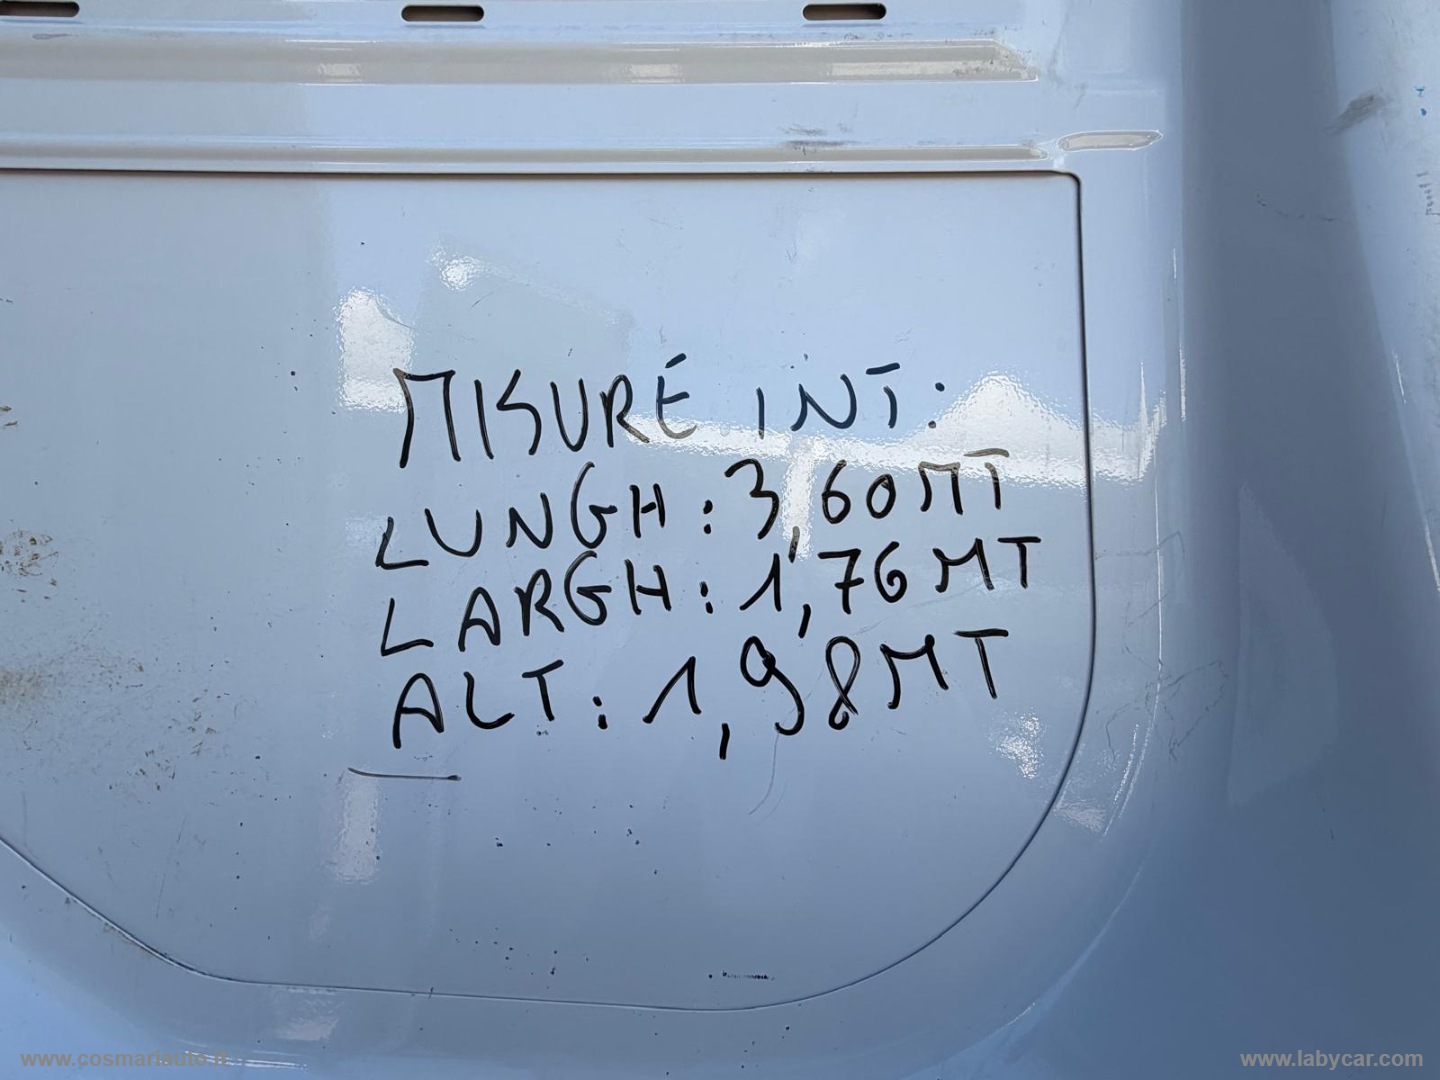 MISURE INT.
LUNGH: 3,60MT
LARGH: 1,76MT
ALT: 1,98MT
www.cosmariauto.it
www.labycar.com